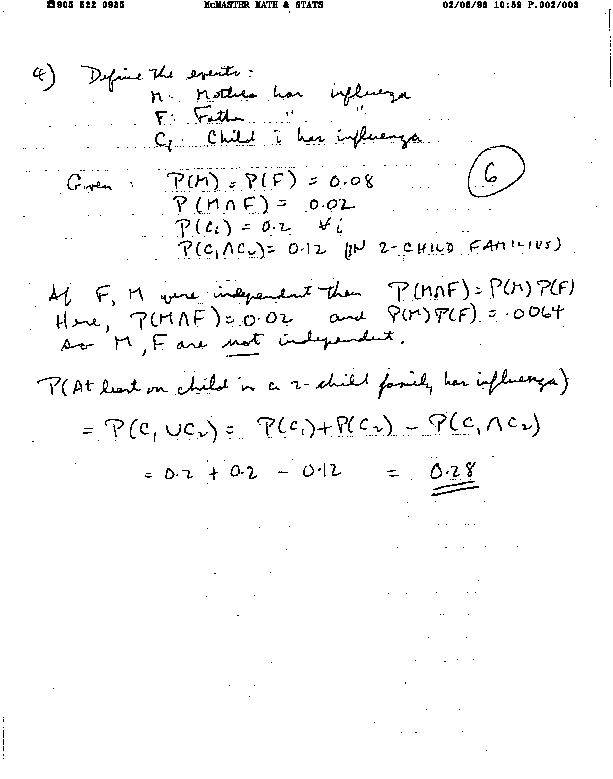 ☎905 522 0935 McMASTER MATH & STATS 02/06/98 10:59 P.002/003
4) Define the events:
M: Mother has influenza
F: Father " "
Ci: Child i has influenza
6
Given: P(M) = P(F) = 0.08
P(M∩F) = 0.02
P(Ci) = 0.2 ∀i
P(C1∩C2) = 0.12 (IN 2-CHILD FAMILIES)
If F, M were independent then P(M∩F) = P(M) P(F)
Here, P(M∩F) = 0.02 and P(M)P(F) = .0064
so M, F are not independent.
P(At least on child in a 2-child family has influenza)
= P(C1 ∪ C2) = P(C1) + P(C2) - P(C1 ∩ C2)
= 0.2 + 0.2 - 0.12 = 0.28